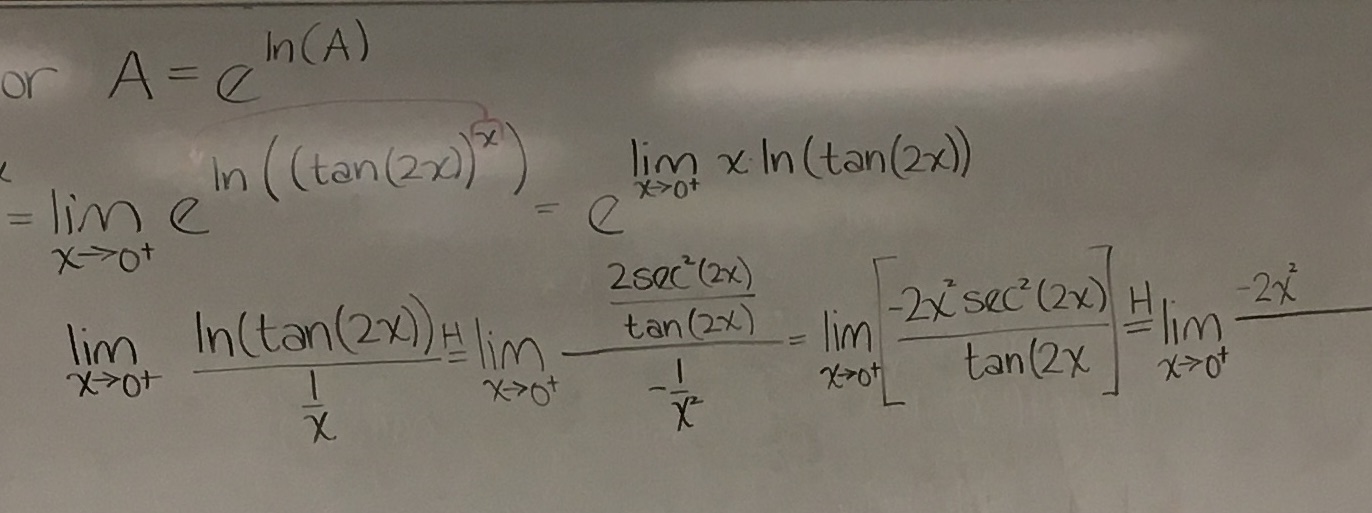 or A = e^{ln(A)}
= lim_{x→0⁺} e^{ln((tan(2x))^x)} = e^{lim_{x→0⁺} x·ln(tan(2x))}
lim_{x→0⁺} \frac{ln(tan(2x))}{\frac{1}{x}} \overset{H}{=} lim_{x→0⁺} \frac{\frac{2sec²(2x)}{tan(2x)}}{-\frac{1}{x²}} = lim_{x→0⁺} [\frac{-2x²sec²(2x)}{tan(2x}] \overset{H}{=} lim_{x→0⁺} \frac{-2x²}{}